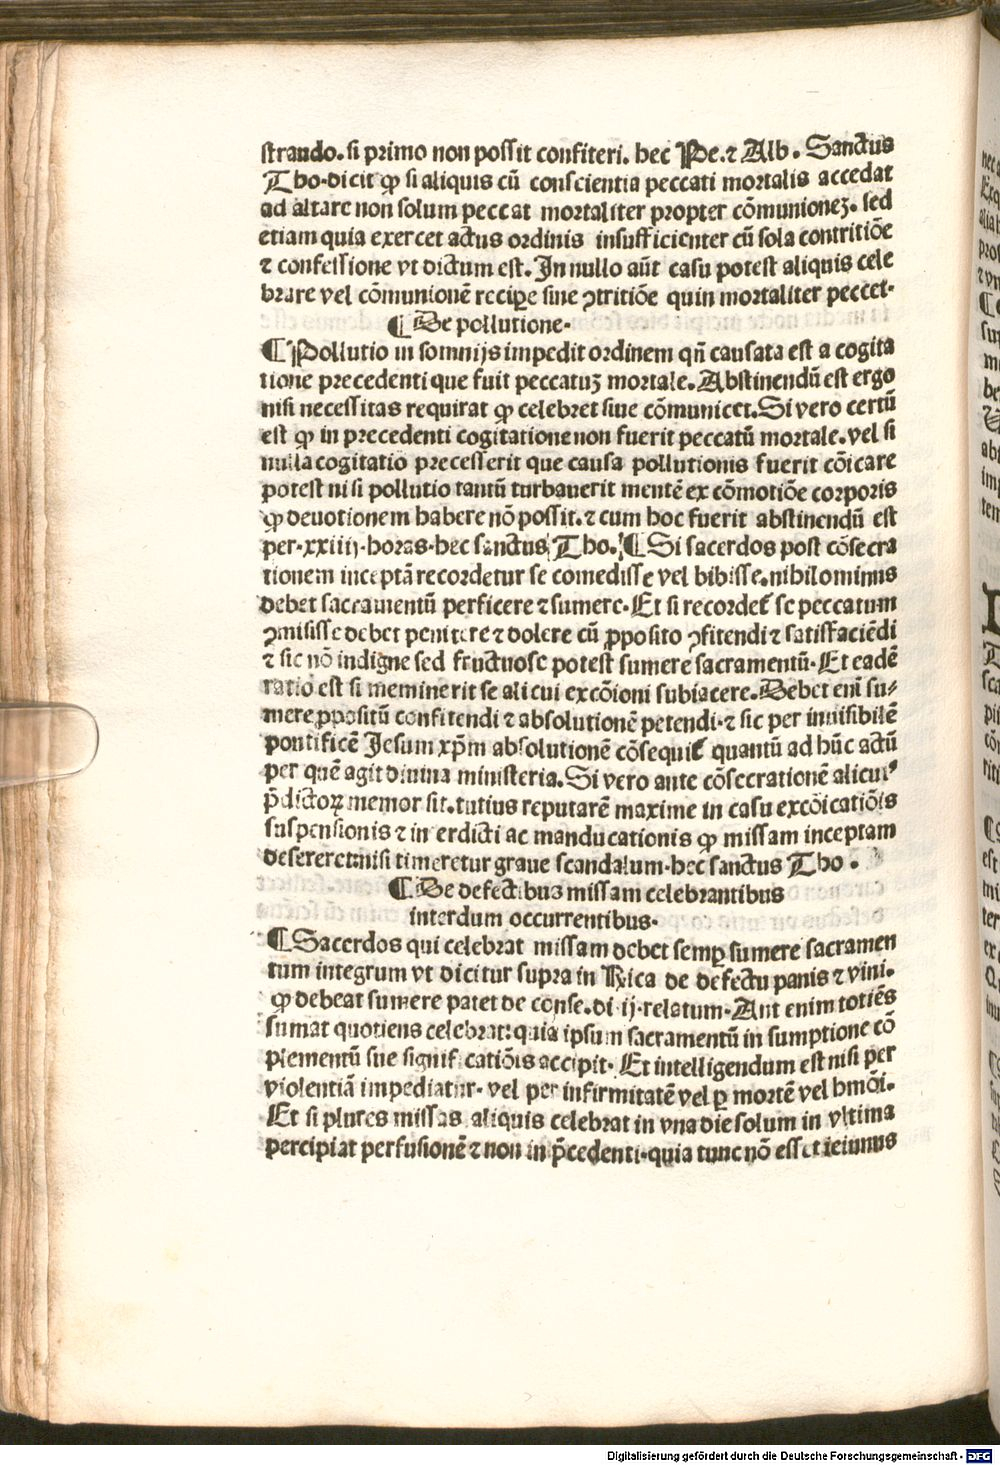 strando. si primo non possit confiteri. hec Pe. ⁊ Alb. Sanctus
Tho. dicit ꝙ si aliquis cū conscientia peccati mortalis accedat
ad altare non solum peccat mortaliter propter cōmunionez. sed
etiam quia exercet actus ordinis insufficienter cū sola contritiōe
⁊ confessione vt dictum est. In nullo aūt casu potest aliquis cele
brare vel cōmunionē recipe̲ sine ꝯtritiōe quin mortaliter peccet.
¶ De pollutione.
¶ Pollutio in somnijs impedit ordinem qn̄ causata est a cogita
tione precedenti que fuit peccatuʒ mortale. Abstinendū est ergo
nisi necessitas requirat ꝙ celebret siue cōmunicet. Si vero certū
est ꝙ in precedenti cogitatione non fuerit peccatū mortale. vel si
nulla cogitatio precesserit que causa pollutionis fuerit cōicare
potest nisi pollutio tantū turbauerit mentē ex cōmotiōe corporis
ꝙ deuotionem habere nō possit. ⁊ cum hoc fuerit abstinendū est
per. xxiiij. horas. hec sanctus Tho. ¶ Si sacerdos post cōsecra
tionem inceptā recordetur se comedisse vel bibisse. nihilominus
debet sacramentū perficere ⁊ sumere. Et si recordet̉ se peccatum
ꝯmisisse debet penitere ⁊ dolere cū ꝓposito ꝯfitendi ⁊ satisfaciēdi
⁊ sic nō indigne sed fructuose potest sumere sacramentū. Et eadē
ratio est si meminerit se alicui excōioni subiacere. Debet eni̅ su⸗
mere ꝓpositū confitendi ⁊ absolutionē petendi. ⁊ sic per inuisibilē
pontificē Jesum xp̄m absolutionē cōsequit̉ quantū ad hūc actū
per quē agit diuina ministeria. Si vero ante cōsecrationē alicuiꝰ
p̄dictoꝝ memor sit. tutius reputarē maxime in casu excōicatiōis
suspensionis ⁊ in erdicti ac manducationis ꝙ missam inceptam
desereret nisi timeretur graue scandalum. hec sanctus Tho.
¶ De defectibus missam celebrantibus
interdum occurrentibus.
¶ Sacerdos qui celebrat missam debet semꝑ sumere sacramen
tum integrum vt dicitur supra in Rica de defectu panis ⁊ vini.
ꝙ debeat sumere patet de conse. di. ij. relatum. Aut enim totiēs
sumat quotiens celebrat: quia ipsum sacramentū in sumptione cō
plementū sue significatiōis accipit. Et intelligendum est nisi per
violentiā impediatur. vel per infirmitatē vel ꝑ mortē vel hmōi.
Et si plures missas aliquis celebrat in vna die solum in vltima
percipiat perfusionē ⁊ non in p̄cedenti. quia tunc nō esset ieiunus
Digitalisierung gefördert durch die Deutsche Forschungsgemeinschaft - DFG